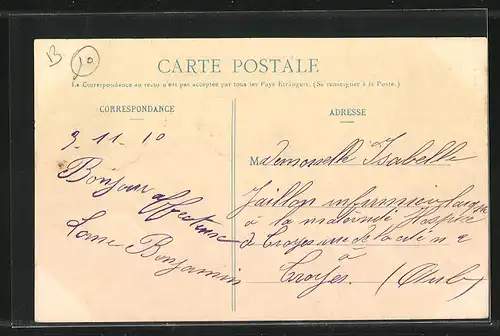 B 10
CARTE POSTALE
La Correspondance au recto n'est pas acceptée par tous les Pays Étrangers. (Se renseigner à la Poste.)
CORRESPONDANCE
9-11-10
Bonjour affectueux
Benjamin
ADRESSE
Mademoiselle Isabelle
Jaillon infirmière
à la maternité Hospice
de Troyes rue de la cité n 2
à
Troyes (Aube)